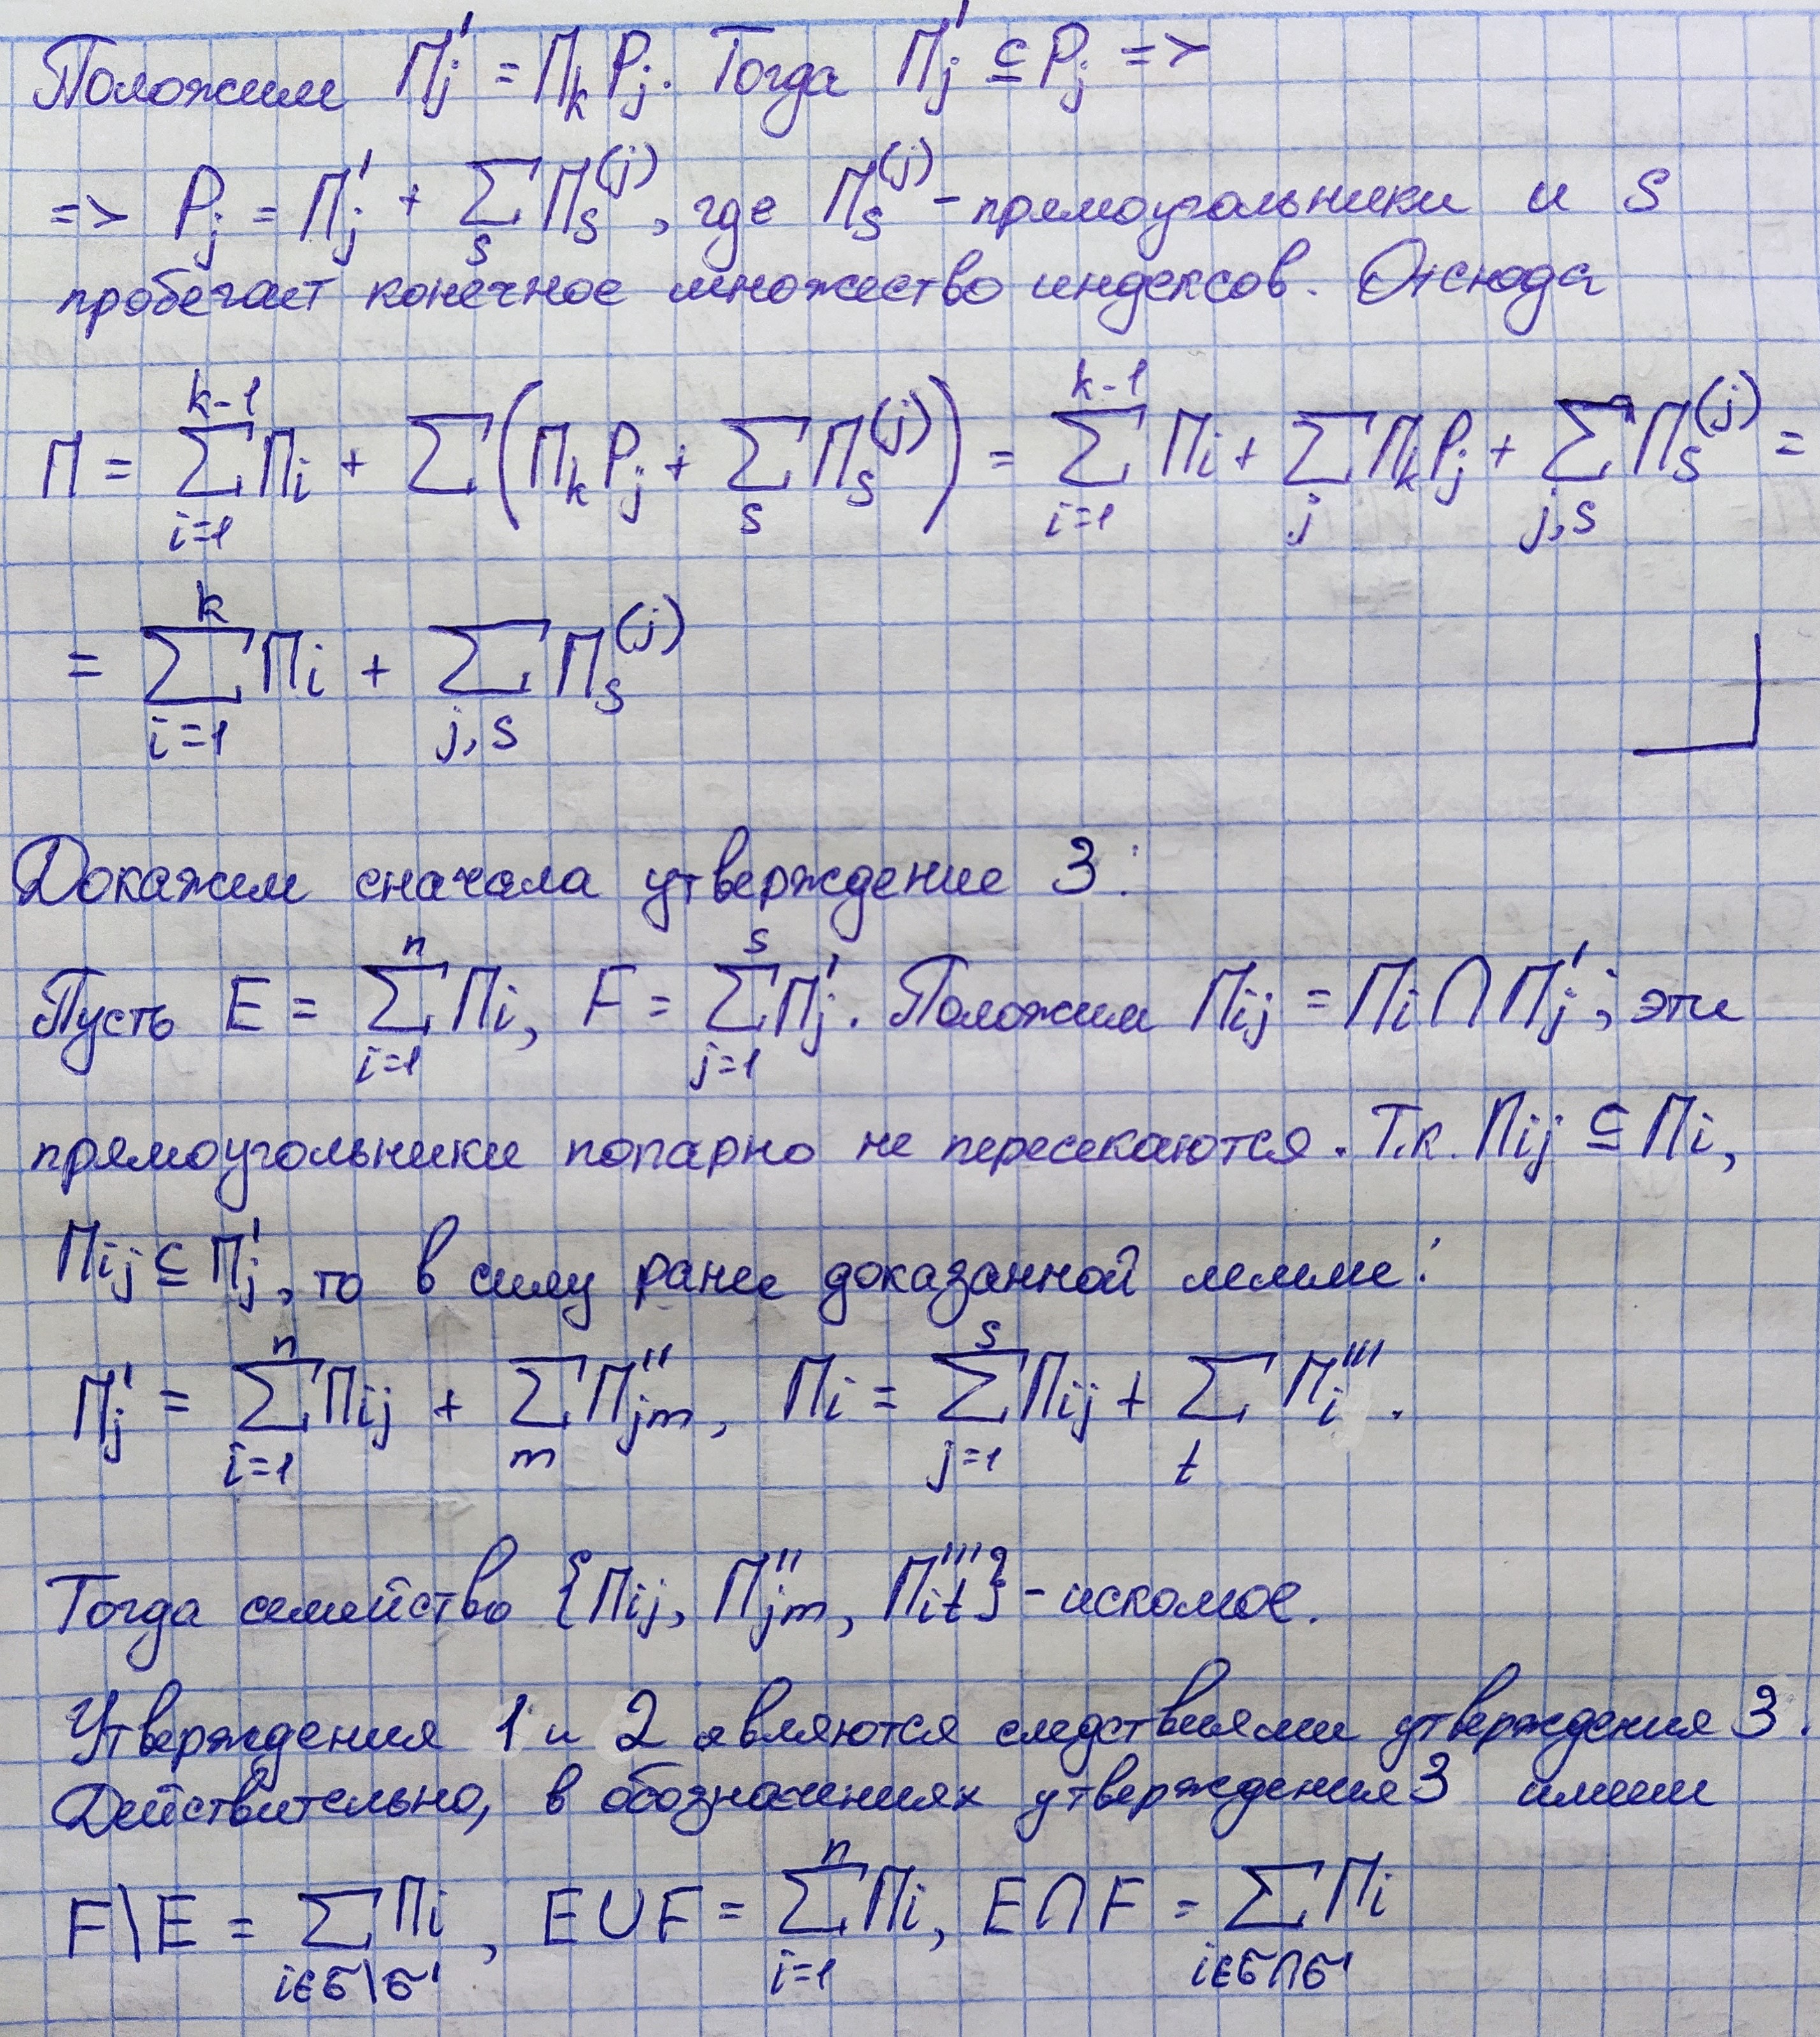 Положим Π'_j = Π_k P_j. Тогда Π'_j ⊆ P_j =>
=> P_j = Π'_j + ∑_s Π_s^(j), где Π_s^(j) - прямоугольники и s
пробегает конечное множество индексов. Отсюда
Π = ∑_{i=1}^{k-1} Π_i + ∑ (Π_k P_j + ∑_s Π_s^(j)) = ∑_{i=1}^{k-1} Π_i + ∑_j Π_k P_j + ∑_{j,s} Π_s^(j) =
= ∑_{i=1}^{k} Π_i + ∑_{j,s} Π_s^(j)
Докажем сначала утверждение 3:
Пусть E = ∑_{i=1}^{n} Π_i, F = ∑_{j=1}^{s} Π'_j. Положим Π_ij = Π_i ∩ Π'_j; эти
прямоугольники попарно не пересекаются. Т.к. Π_ij ⊆ Π_i,
Π_ij ⊆ Π'_j, то в силу ранее доказанной леммы:
Π'_j = ∑_{i=1}^{n} Π_ij + ∑_m Π''_jm, Π_i = ∑_{j=1}^{s} Π_ij + ∑_t Π'''_i.
Тогда семейство {Π_ij, Π''_jm, Π'''_it} - искомое.
Утверждения 1 и 2 являются следствиями утверждения 3.
Действительно, в обозначениях утверждения 3 имеем
F\E = ∑_{i∈σ\σ'} Π_i, E∪F = ∑_{i=1}^{n} Π_i, E∩F = ∑_{i∈σ∩σ'} Π_i